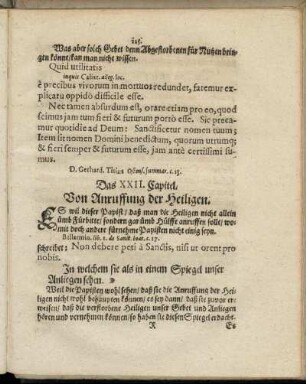 Was aber solch Gebet denn Abgestorbenen für Nutzen brin-
gen könnt/kan man nicht wissen.
Quid utilitatis
inquit Calixt. alleg. loc.
è precibus vivorum in mortuos redundet, fatemur ex-
plicatu oppidò difficile esse.
Nec tamen absurdum est, orare etiam pro eo, quod
scimus jam tum fieri & futurum porrò esse. Sic prece-
amur quotidie ad Deum: Sanctificetur nomen tuum;
Item sit nomen Domini benedictum, quorum utrumq;
& fieri semper & futurum esse, jam antè certissimi su-
mus.
D. Gerhard. Titius Ostens. summar. c. 15.
Das XXII. Capitel.
Von Anruffung der Heiligen.
ES wil dieser Papist/ daß man die Heiligen nicht allein
umb Fürbitte/ sondern gar umb Hülffe anruffen solle/ wo-
mit doch andere fürnehme Papisten nicht einig seyn.
Bellarmin. lib. 1. de Sanct. beat. c. 17.
schreibet: Non debere peti à Sanctis, nisi ut orent pro
nobis.
In welchem sie als in einem Spiegel unser
Anliegen sehen.
Weil die Papisten wohl sehen/ daß sie die Anruffung der Hei-
ligen nicht wohl behäupten können/ es sey dann/ daß sie zuvor er-
weisen/ daß die verstorbene Heiligen unser Gebet und Anliegen
hören und vernehmen können/so haben sie diesen Spiegel erdacht.
R Es